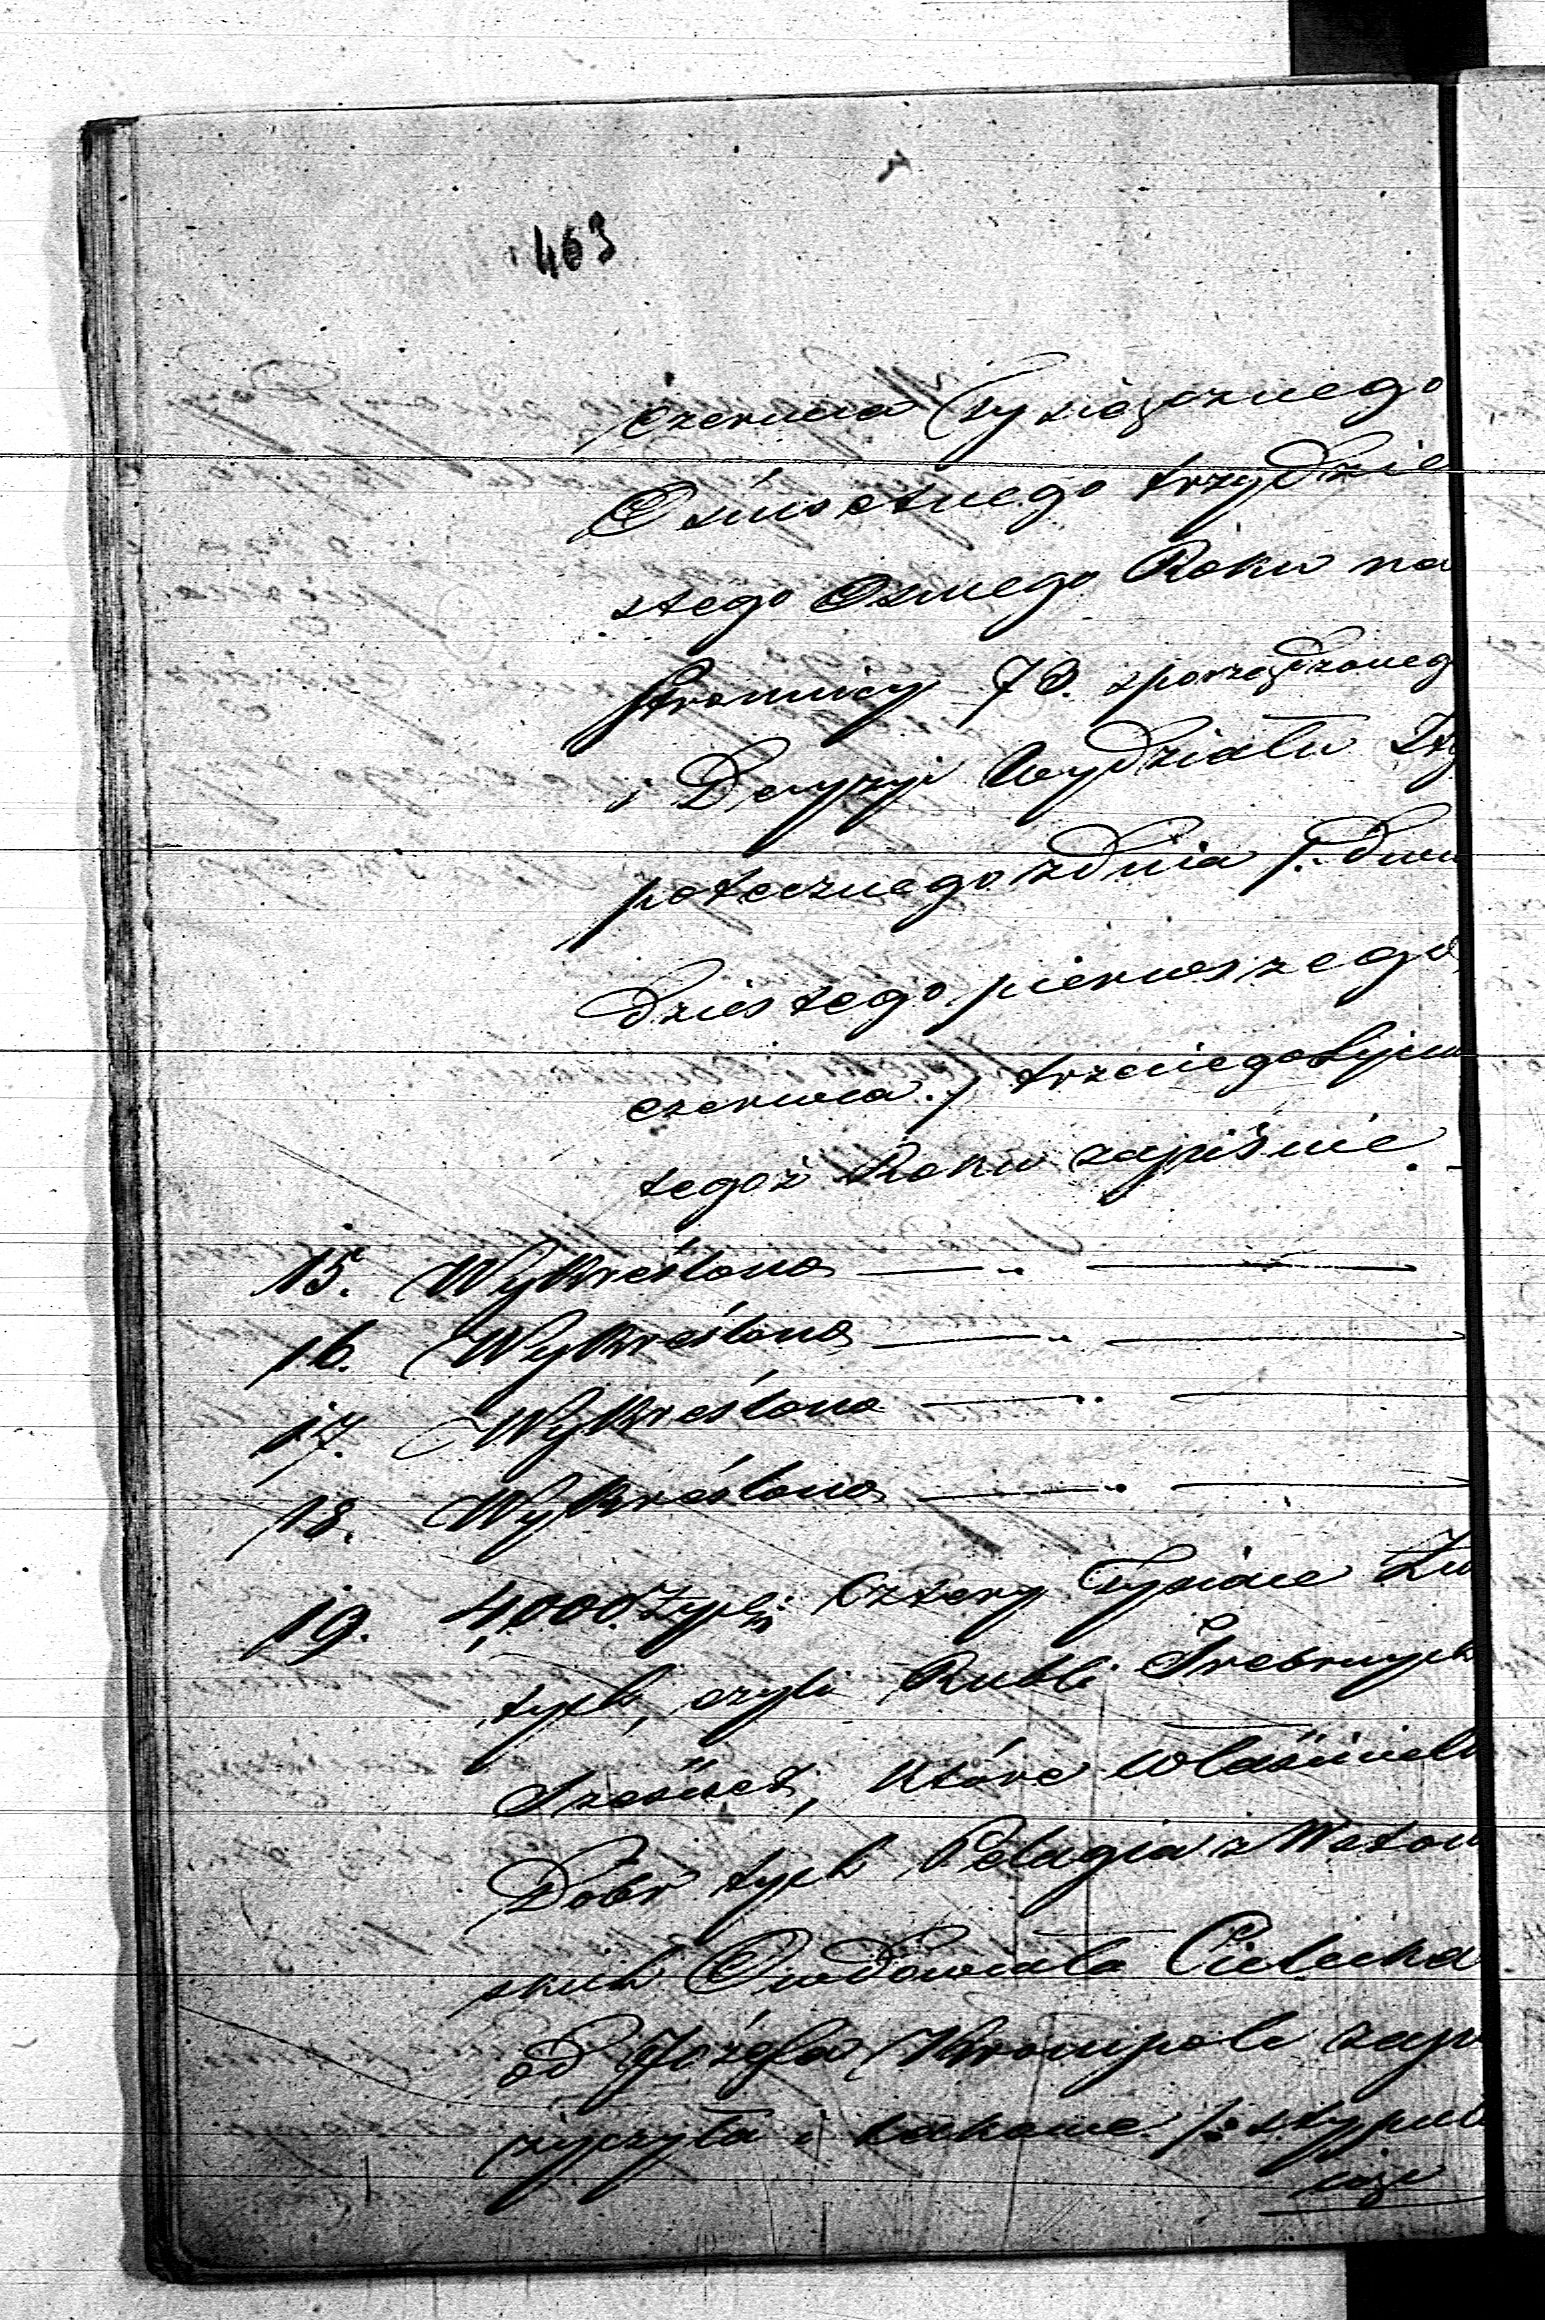 463
czerwca Tysiącznego
Ośmsetnego trzydzie
stego Osmego Roku na
stronnicy 73. sporządzoneg
i Decyzyi Wydziału Hy
potecznego z dnia /: dwu
dziestego pierwszego
czerwca :/ trzeciego Lipca
tegoż Roku zapiśnie. -
15. Wykreślono — „ —
16. Wykreślono — „ —
17. Wykreślono — „ —
18. Wykreślono — „ —
19. 4,000. Złych: Cztery Tysiące Zło
tych, czyli Rubli Srebrnych
Sześćset, które Właścicielk
Dobr tych Pelagia z Wę
skich Owdowiała Cielecka
od Józefa zapo
życzyła i takowe /: stypul